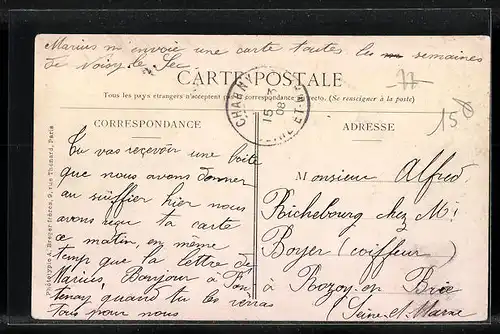 Marius m'envoie une carte toutes les semaines
de Noisy le Sec
CARTE POSTALE
Tous les pays étrangers n'acceptent pas la correspondance au recto. (Se renseigner à la poste)
CHARNY
15 3 08
SEINE ET M
77
158
CORRESPONDANCE
ADRESSE
Tu vas recevoir une boîte
que nous avons donner
au greffier hier nous
avons reçu ta carte
ce matin, en meme
temp que la lettre de
Marius, Bonjour à Fon
tenay quand tu les verras
tous pour nous
Monsieur Alfred
Richebourg chez Mr
Boyer (coiffeur)
à Rozoy en Brie
(Seine-et-Marne
Phototypie A. Breger frères, 9, rue Thénard, Paris